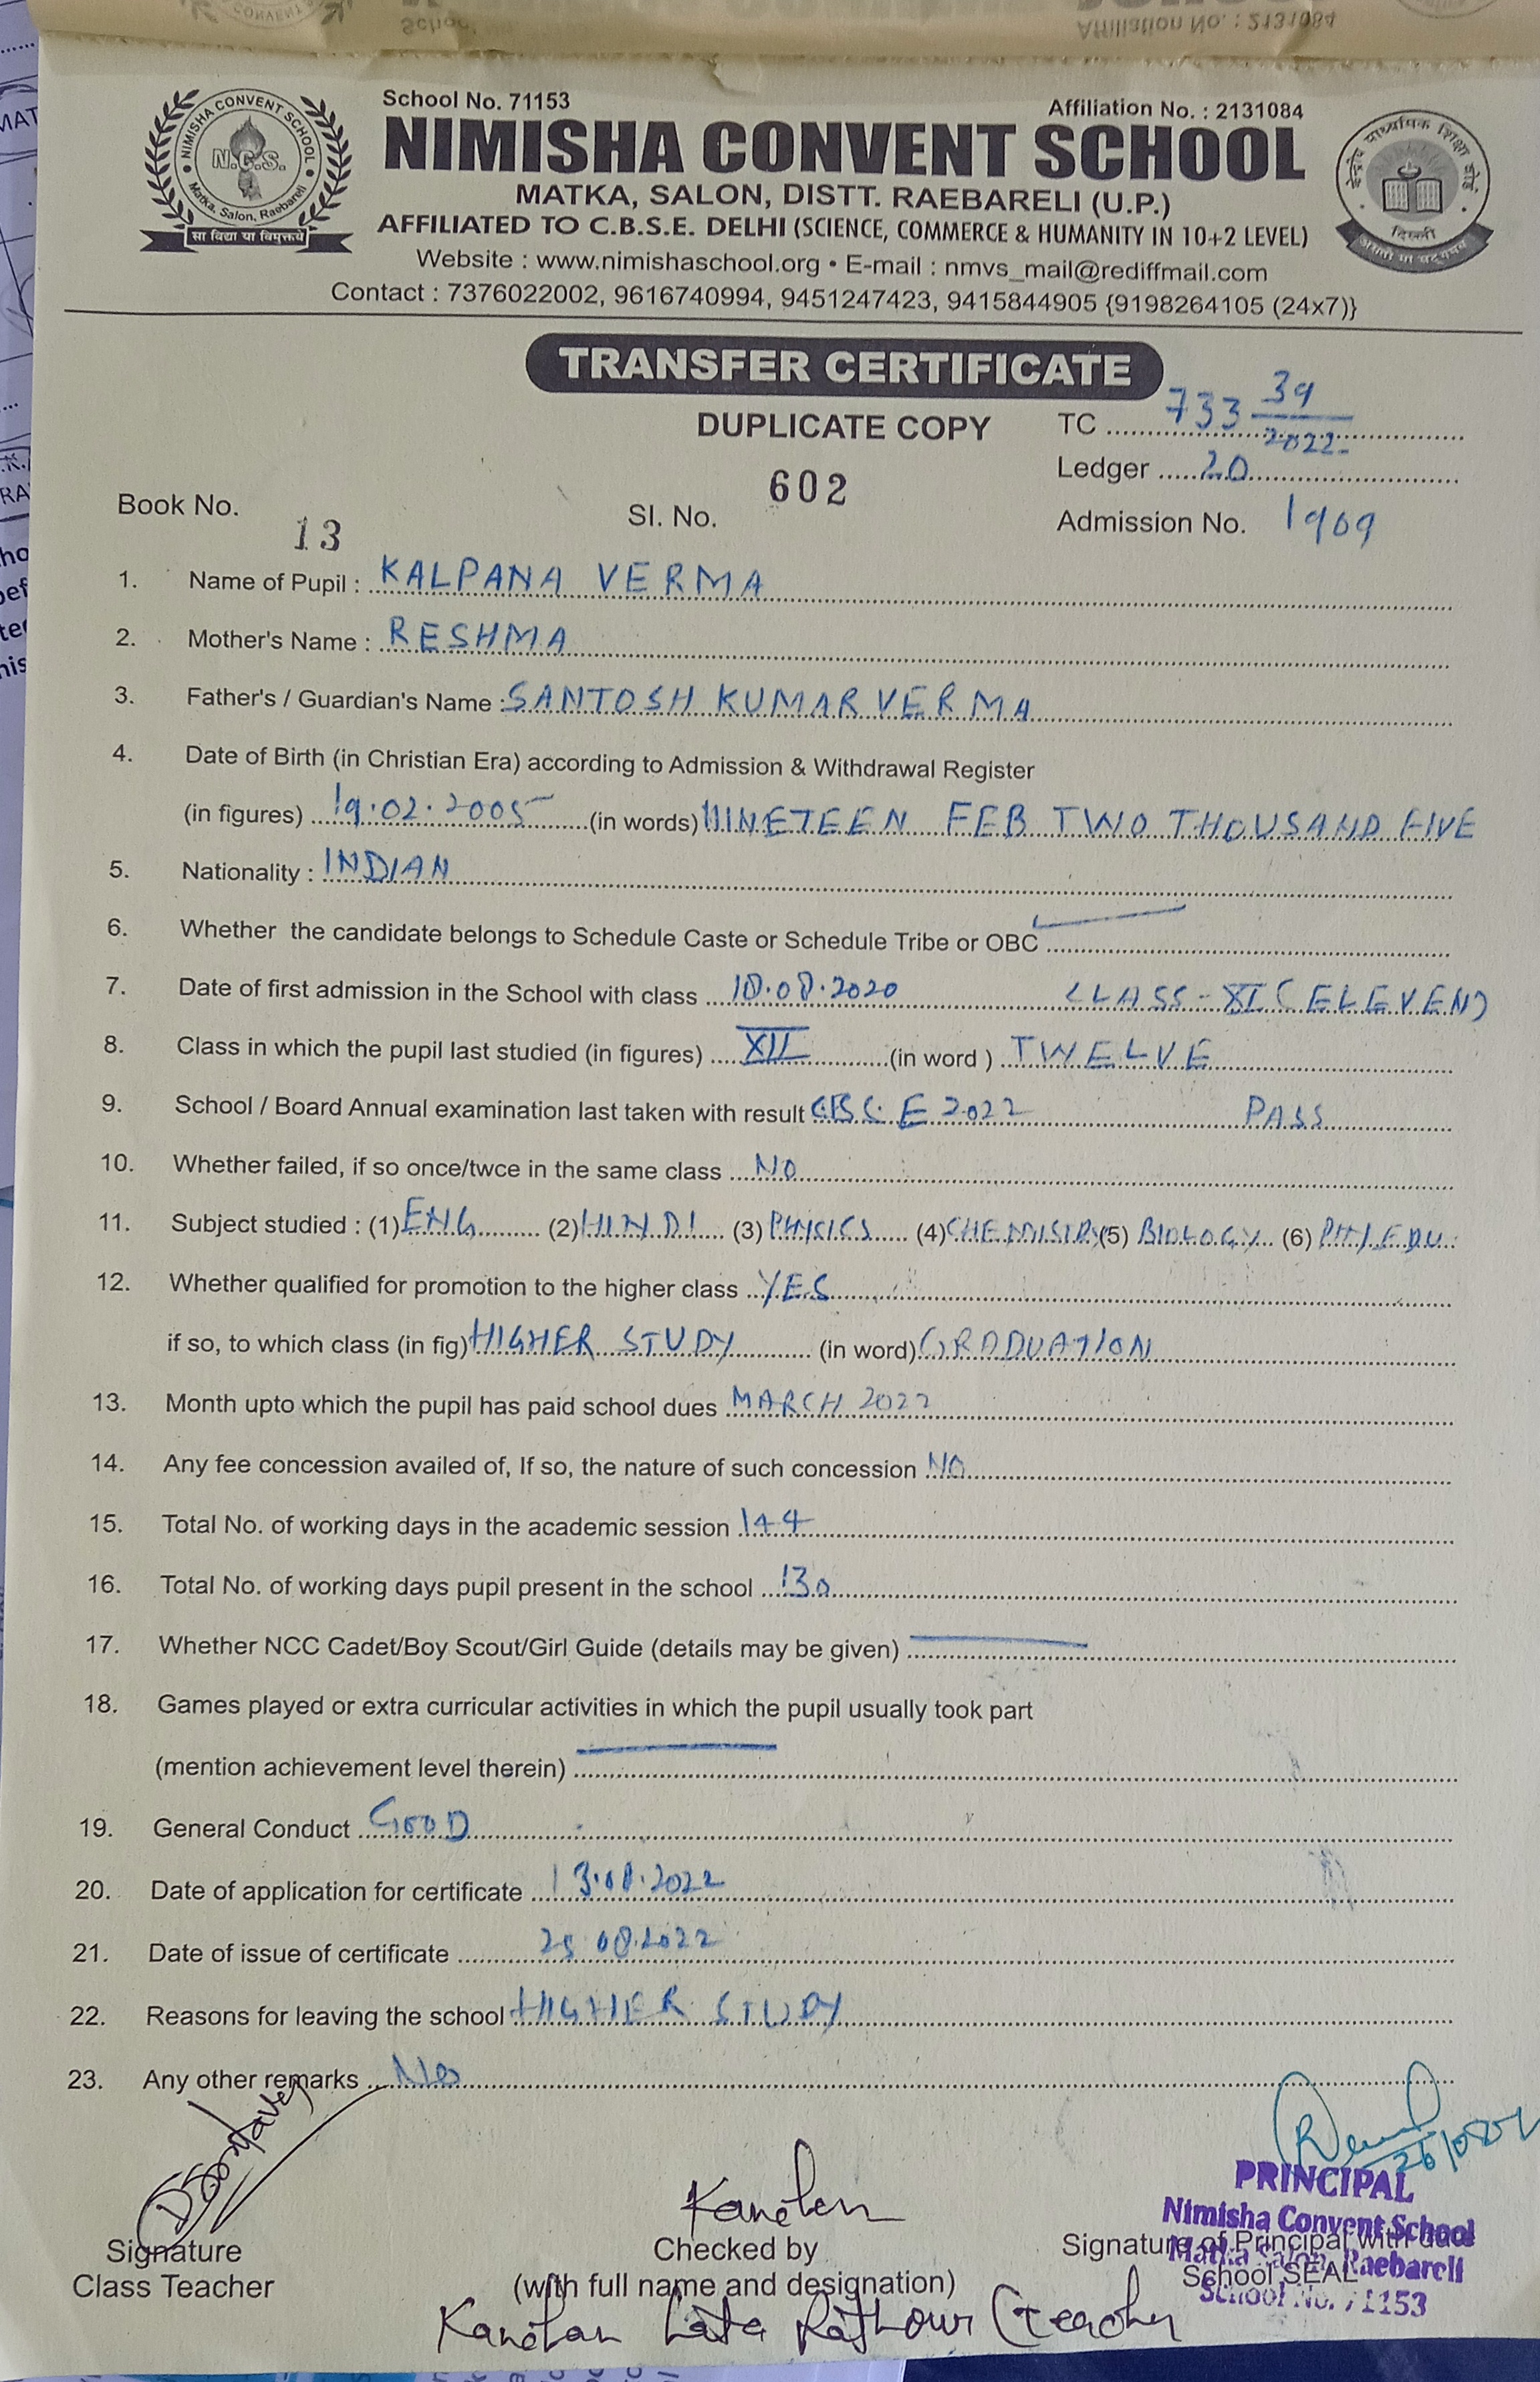 Affiliation No. : 2131084
School No. 71153
Affiliation No. : 2131084
NIMISHA CONVENT SCHOOL
MATKA, SALON, DISTT. RAEBARELI (U.P.)
AFFILIATED TO C.B.S.E. DELHI (SCIENCE, COMMERCE & HUMANITY IN 10+2 LEVEL)
Website : www.nimishaschool.org • E-mail : nmvs_mail@rediffmail.com
Contact : 7376022002, 9616740994, 9451247423, 9415844905 {9198264105 (24x7)}
NIMISHA CONVENT SCHOOL
N.C.S.
Matka, Salon, Raebareli
सा विद्या या विमुक्तये
केन्द्रीय माध्यमिक शिक्षा बोर्ड
दिल्ली
असतो मा सद्गमय
TRANSFER CERTIFICATE
DUPLICATE COPY
TC 733 39/2022
Ledger 20
Book No. 13
Sl. No. 602
Admission No. 1909
1. Name of Pupil : KALPANA VERMA
2. Mother's Name : RESHMA
3. Father's / Guardian's Name : SANTOSH KUMAR VERMA
4. Date of Birth (in Christian Era) according to Admission & Withdrawal Register
(in figures) 19.02.2005 (in words) NINETEEN FEB TWO THOUSAND FIVE
5. Nationality : INDIAN
6. Whether the candidate belongs to Schedule Caste or Schedule Tribe or OBC
7. Date of first admission in the School with class 10.08.2020 CLASS - XI (ELEVEN)
8. Class in which the pupil last studied (in figures) XII (in word ) TWELVE
9. School / Board Annual examination last taken with result CBSE 2022 PASS
10. Whether failed, if so once/twce in the same class NO
11. Subject studied : (1) ENG (2) HINDI (3) PHYSICS (4) CHEMISTRY (5) BIOLOGY (6) PHY EDU.
12. Whether qualified for promotion to the higher class YES
if so, to which class (in fig) HIGHER STUDY (in word) GRADUATION
13. Month upto which the pupil has paid school dues MARCH 2022
14. Any fee concession availed of, If so, the nature of such concession NO
15. Total No. of working days in the academic session 144
16. Total No. of working days pupil present in the school 130
17. Whether NCC Cadet/Boy Scout/Girl Guide (details may be given)
18. Games played or extra curricular activities in which the pupil usually took part
(mention achievement level therein)
19. General Conduct GOOD
20. Date of application for certificate 13.08.2022
21. Date of issue of certificate 25.08.2022
22. Reasons for leaving the school HIGHER STUDY
23. Any other remarks No
Signature
Class Teacher
Kanchan
Checked by
(with full name and designation)
Kanchan Lata Rathour (teacher
PRINCIPAL
Nimisha Convent School
Matka Salon, Raebareli
School No. 71153
Signature of Principal with date
School SEAL